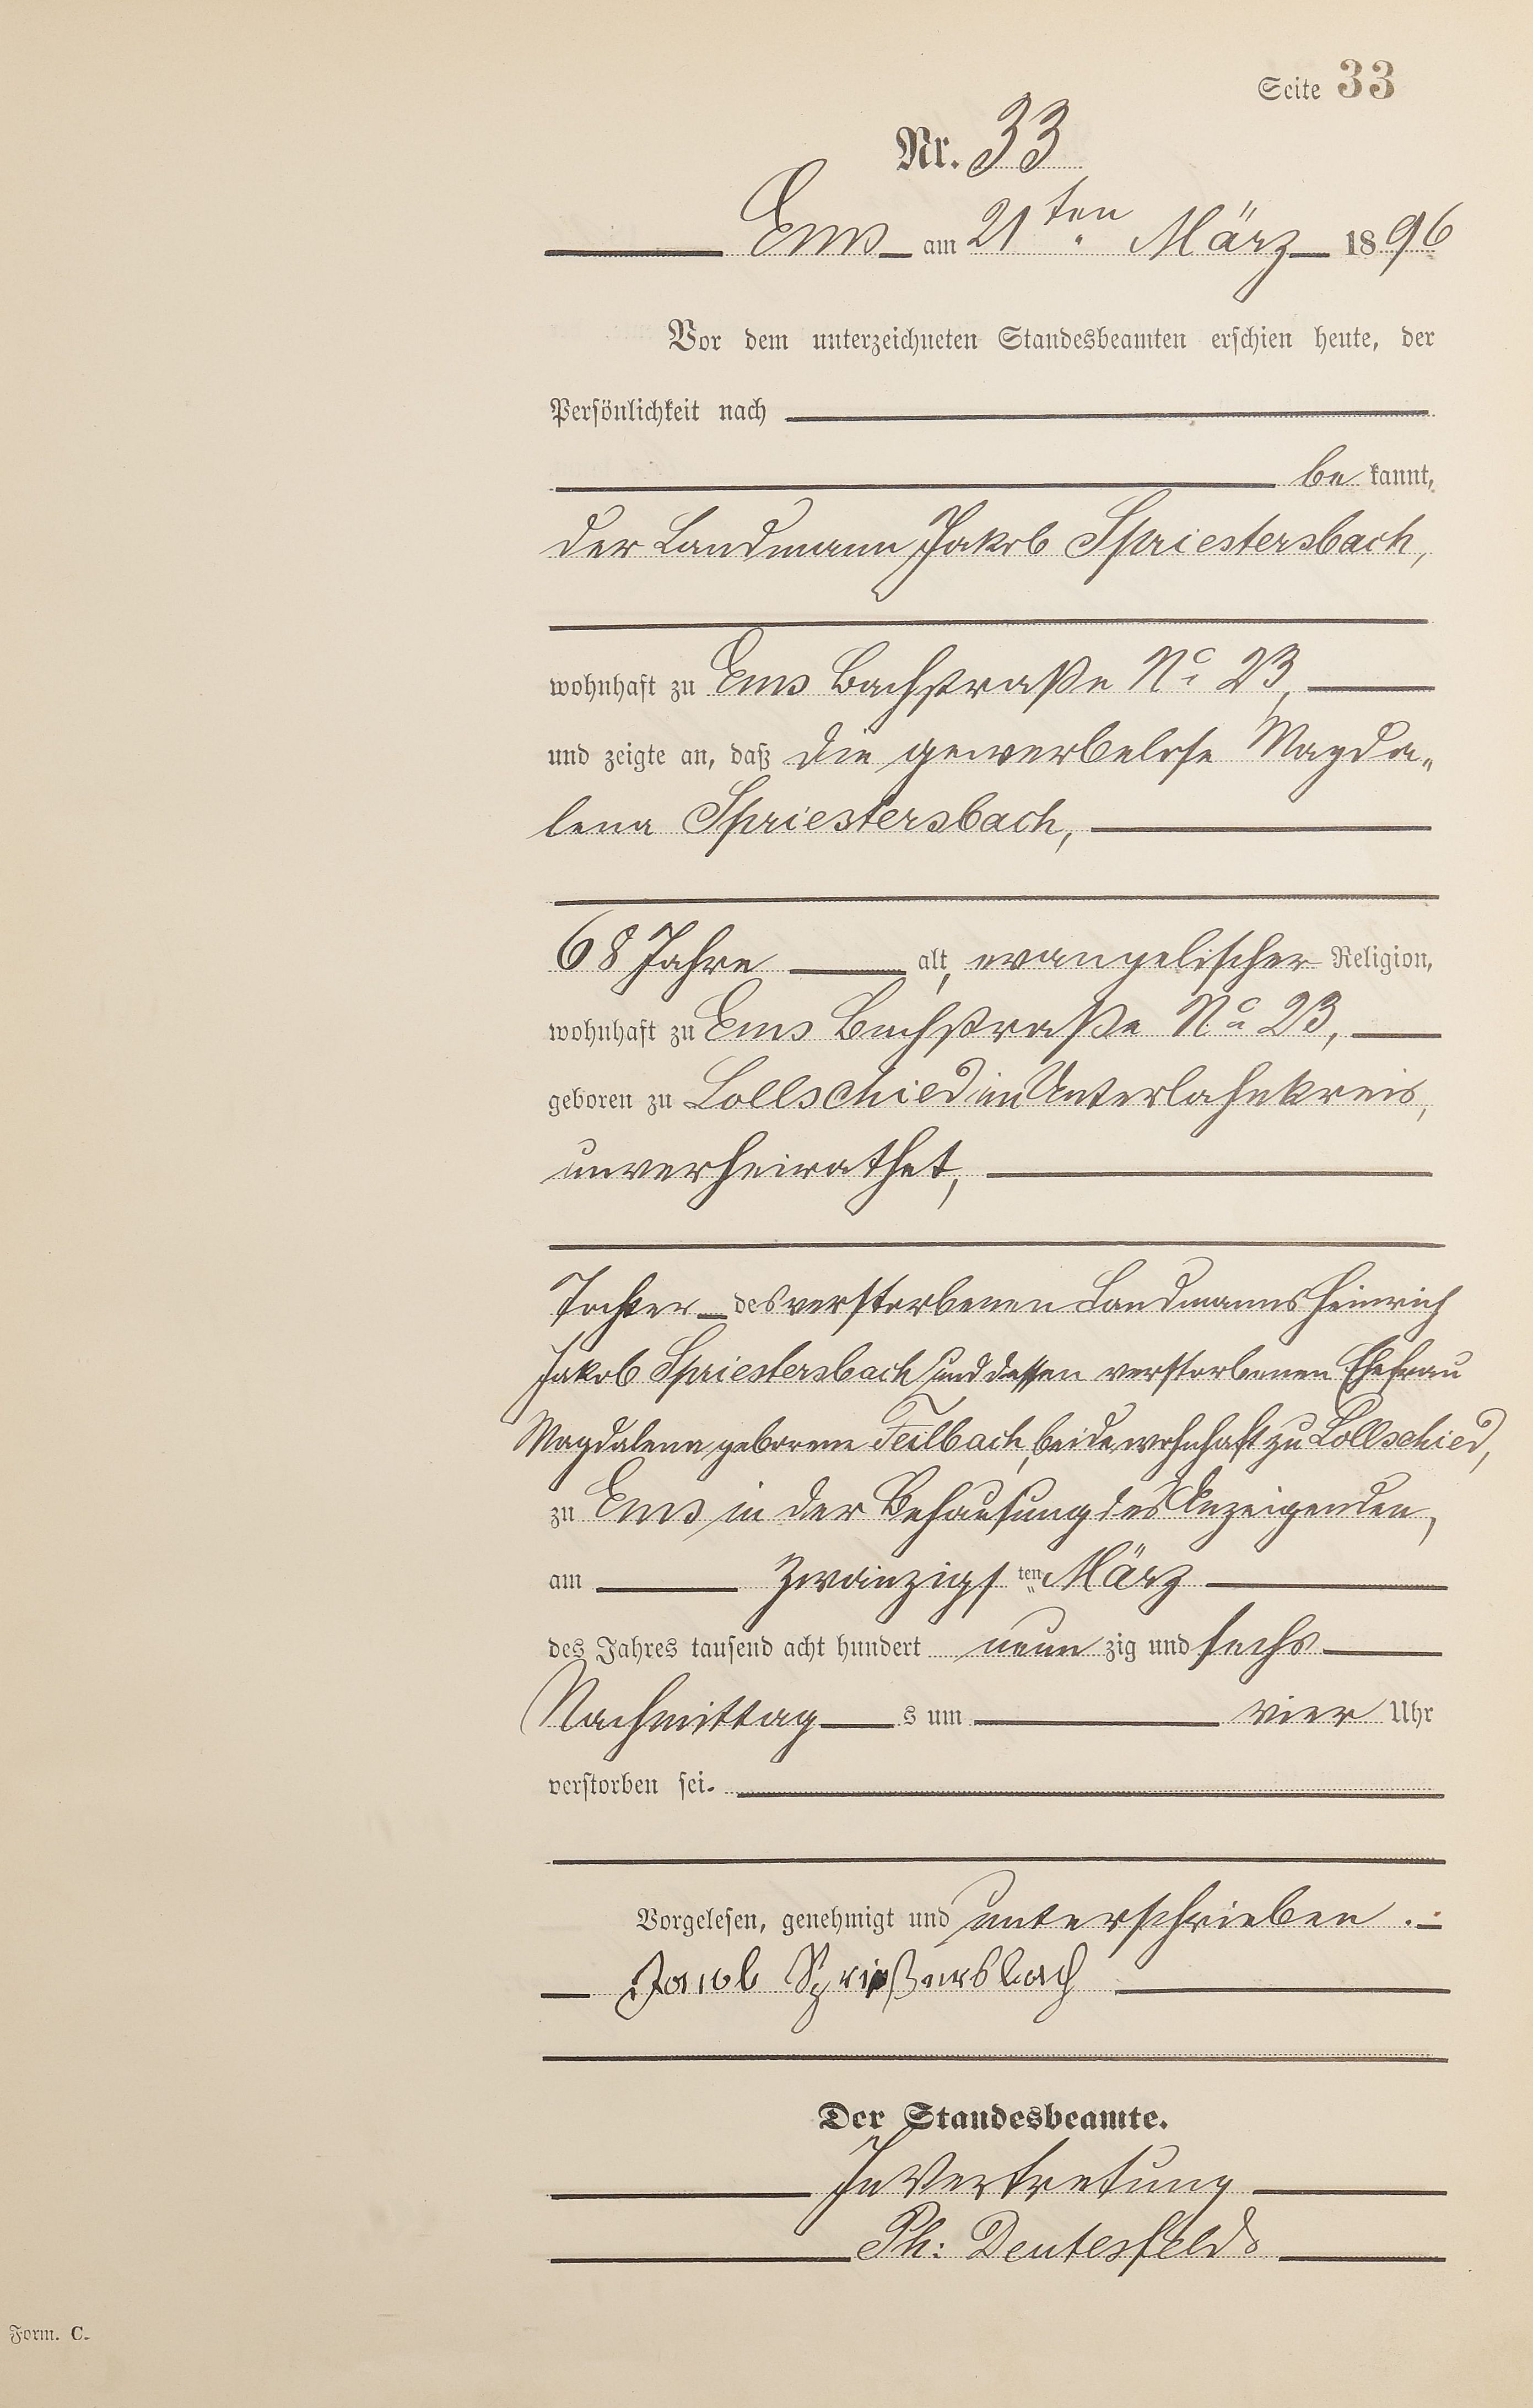 Seite 33
Nr. 33
Ems am 21ten März 1896
Vor dem unterzeichneten Standesbeamten erschien heute, der
Persönlichkeit nach
be kannt,
der Landmann Jakob Spriestersbach,
wohnhaft zu Ems Bachstraße No 23,
und zeigte an, daß die gewerbelose Magda„
lena Spriestersbach,
68 Jahre alt, evangelischer Religion,
wohnhaft zu Ems Bachstraße No 23,
geboren zu Lollschied im Unterlahnkreis,
unverheirathet,
Tochter des verstorbenen Landmanns Heinrich
Jakob Spriestersbach und dessen verstorbenen Ehefrau
Magdalena geborene Feilbach, beide wohnhaft zu Lollschied,
zu Ems in der Behausung des Anzeigenden,
am zwanzigsten März
des Jahres tausend acht hundert neun zig und sechs
Nachmittag s um vier Uhr
verstorben sei.
Vorgelesen, genehmigt und unterschrieben.
Jacob Sprießersbach
Der Standesbeamte.
In Vertretung
Ph: Deutesfeld
Form. C.